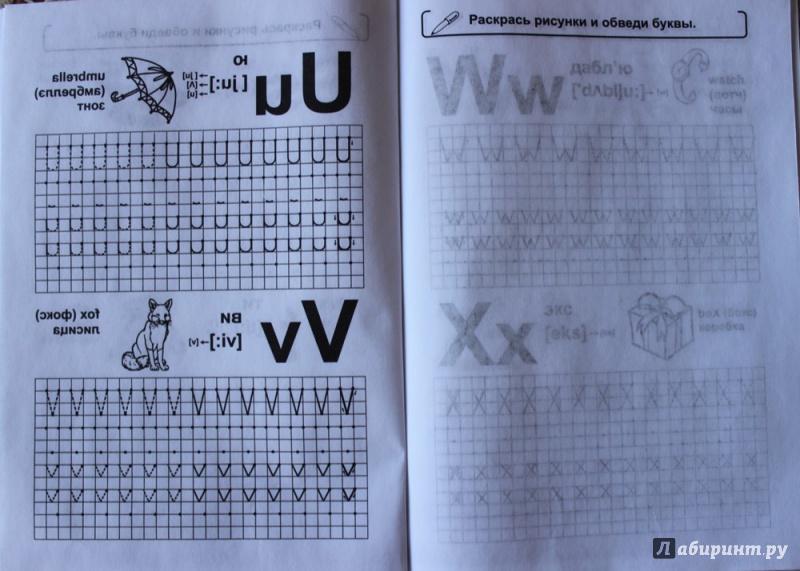 Раскрась рисунки и обведи буквы.
umbrella
(амбреллэ)
зонт
ю
[ju:]
Uu
fox (фокс)
лисица
ви
[vi:]→[v]
Vv
Раскрась рисунки и обведи буквы.
Ww
дабл'ю
['dʌblju:]→[w]
watch
(вотч)
часы
Xx
экс
[eks]→[ks]
box (бокс)
коробка
Лабиринт.ру